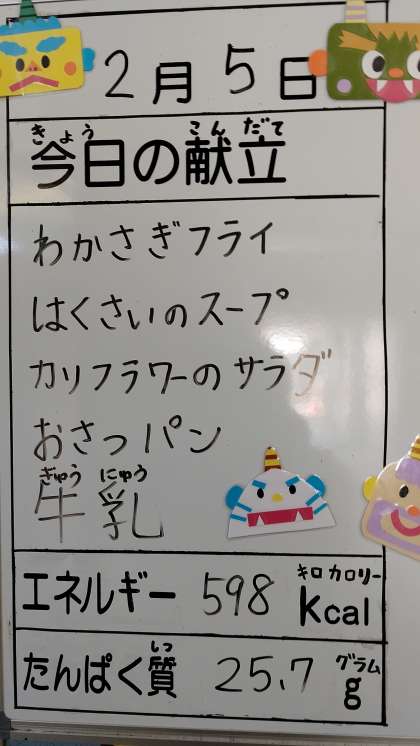 2月5日
きょう こんだて
今日の献立
わかさぎフライ
はくさいのスープ
カリフラワーのサラダ
おさつパン
ぎゅう にゅう
牛乳
エネルギー 598 キロカロリー kcal
しつ
たんぱく質 25.7 グラム g